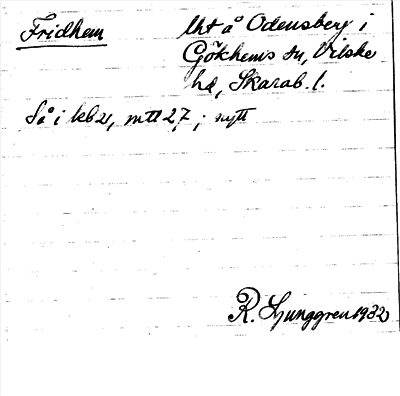 Fridhem
lht å Odensberg i
Gökhems sn, Vilske
hd, Skarab. l.
Så i kb 21, mtl 27; nytt
R. Ljunggren 1932